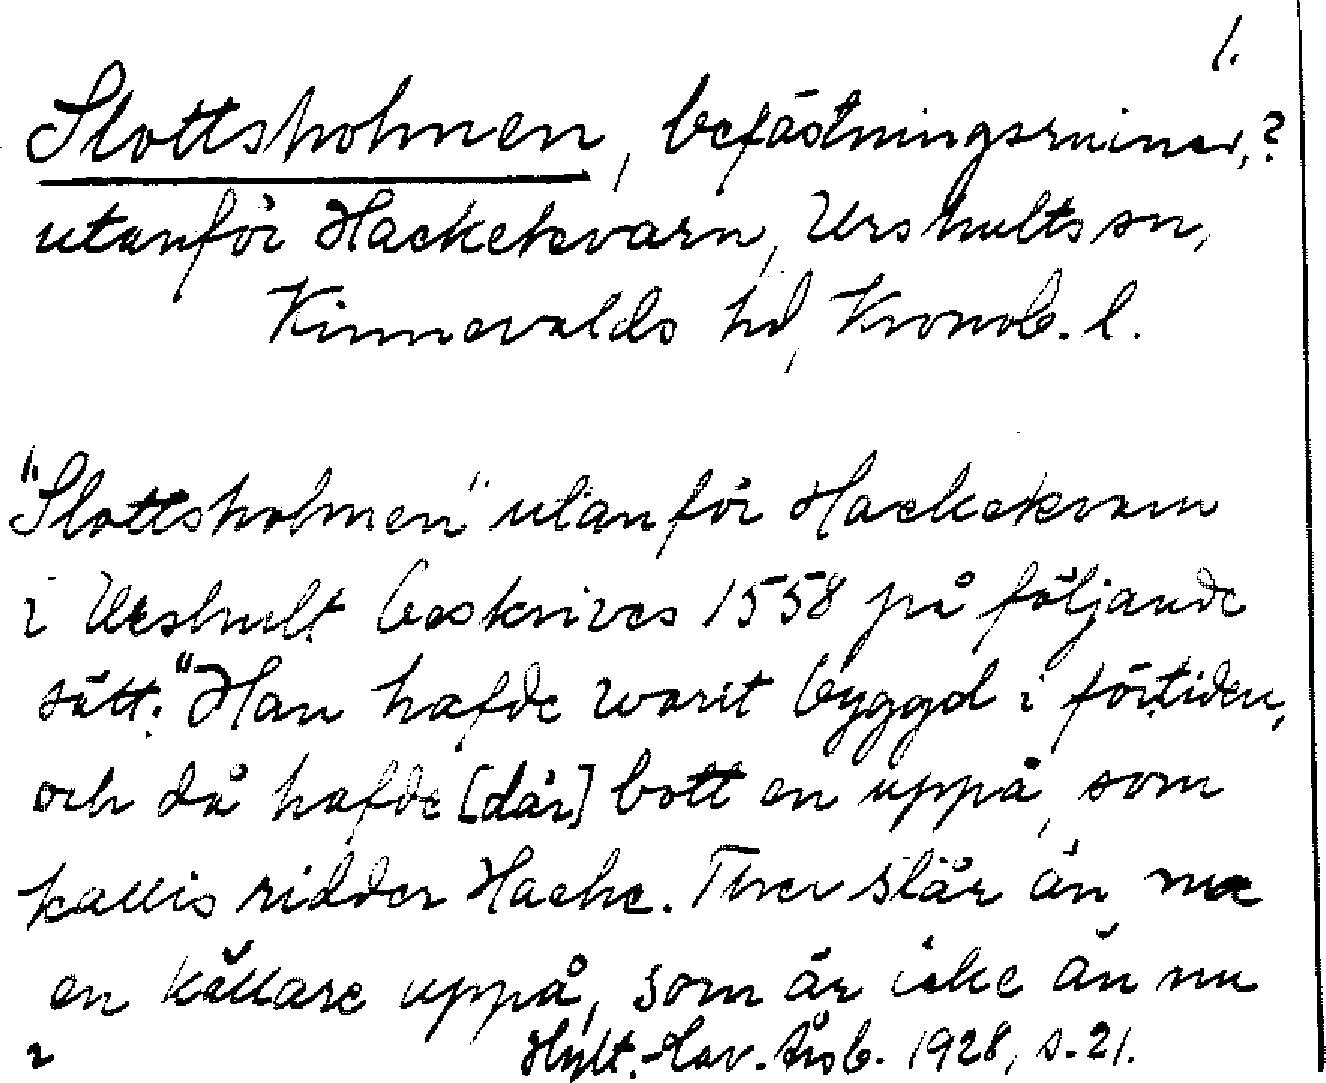 1.
Slottsholmen, befästningsruiner,?
utanför Hackekvarn, Urshults sn,
Kinnevalds hd, Kronob. l.
"Slottsholmen" utanför Hackekvarn
i Urshult beskrives 1558 på följande
sätt: "Han hafde warit byggd i förtiden,
och då hafde [där] bott en uppå, som
kallis ridder Hacke. Ther står än
en källare uppå, som är icke än nu
2 Hylt.-Cav. Årsb. 1928, s. 21.